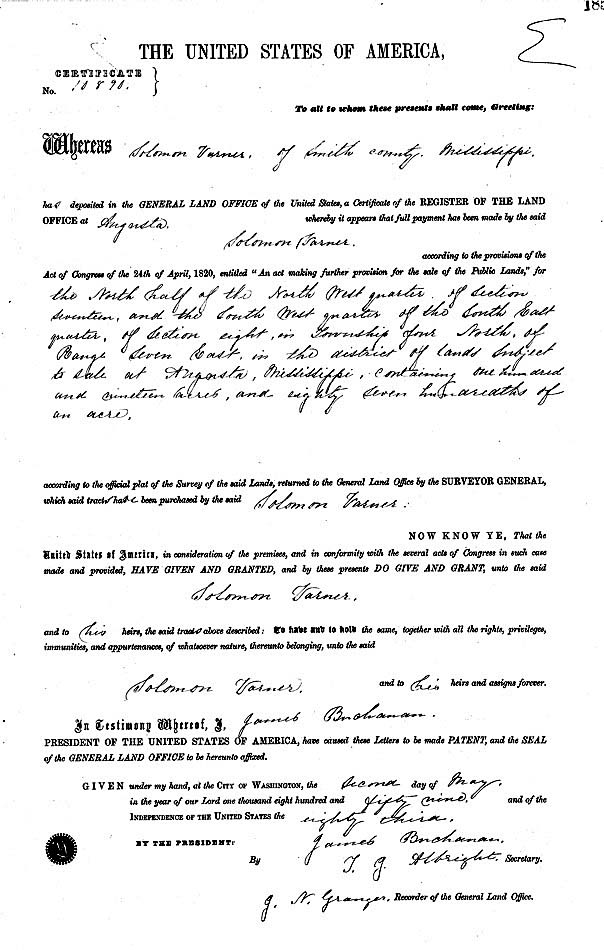 185
THE UNITED STATES OF AMERICA,
CERTIFICATE
No. 10890.
To all to whom these presents shall come, Greeting:
Whereas Solomon Varner, of Smith county, Mississippi,
has deposited in the GENERAL LAND OFFICE of the United States, a Certificate of the REGISTER OF THE LAND
OFFICE at Augusta whereby it appears that full payment has been made by the said
Solomon Varner.
according to the provisions of the
Act of Congress of the 24th of April, 1820, entitled "An act making further provision for the sale of the Public Lands," for
the North half of the North West quarter, of section
seventeen, and the South West quarter of the South East
quarter, of section eight, in Township four North, of
Range seven East, in the district of lands subject
to sale at Augusta, Mississippi, containing one hundred
and nineteen acres, and eighty seven hundredths of
an acre,
according to the official plat of the Survey of the said Lands, returned to the General Land Office by the SURVEYOR GENERAL,
which said tracts have been purchased by the said Solomon Varner:
NOW KNOW YE, That the
United States of America, in consideration of the premises, and in conformity with the several acts of Congress in such case
made and provided, HAVE GIVEN AND GRANTED, and by these presents DO GIVE AND GRANT, unto the said
Solomon Varner,
and to his heirs, the said tracts above described: To have and to hold the same, together with all the rights, privileges,
immunities, and appurtenances, of whatsoever nature, thereunto belonging, unto the said
Solomon Varner, and to his heirs and assigns forever.
In Testimony Whereof, I, James Buchanan.
PRESIDENT OF THE UNITED STATES OF AMERICA, have caused these Letters to be made PATENT, and the SEAL
of the GENERAL LAND OFFICE to be hereunto affixed.
GIVEN under my hand, at the CITY OF WASHINGTON, the second day of May,
in the year of our Lord one thousand eight hundred and fifty nine and of the
INDEPENDENCE OF THE UNITED STATES the eighty third.
BY THE PRESIDENT: James Buchanan.
By T. J. Albright, Secretary.
J. N. Granger, Recorder of the General Land Office.